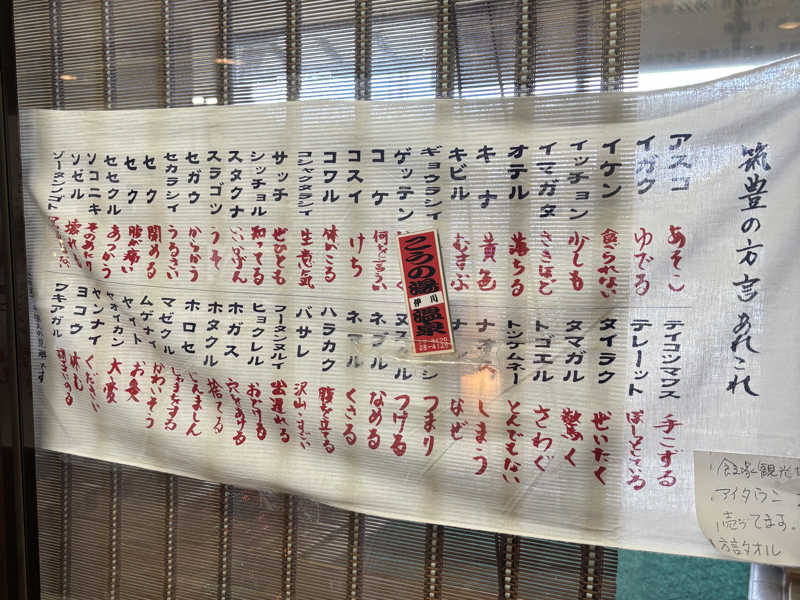 筑豊の方言あれこれ
アスコ あそこ
イガウ ゆでる
イケン 食られない
イッチョン 少しも
イマガタ さきほど
オテル 落ちる
キナ 黄色
キビル むすぶ
ギョウラシイ
ゲッテン
コケ
コスイ けち
コワル 体がこる
コシャクラシイ 生意気
サッチ ぜひとも
シッチョル 知ってる
スタクナ
スラゴツ うそ
セガウ からかう
セカラシイ うるさい
セク 閉める
セク 腹が痛い
セセクル あつかう
ソコニキ そのあたり
ソゼル 壊れる
ゾータンゴト
テイコンマウス 手こずる
テレーット ぼーとしている
タイラク ぜいたく
タマガル 驚く
トゴエル さわぐ
トンテムネー とんでもない
ナオス しまう
なぜ
つまり
つける
ネブル なめる
ネマル くさる
ハラカク 腹を立てる
バサレ 沢山・すごい
フータンヌルイ 出遅れる
ヒョクレル おどける
ホガス 穴をあける
ホタクル 捨てる
ホロセ じんましん
マゼクル じゃまをする
ムゲナイ かわいそう
ヤイト お灸
ヤオイカン 大変
ヤンナイ ください
ヨコウ 休む
ワキアガル
こうの湯
伊川
温泉
28-4126
アイタウン
売ってます。
方言タオル